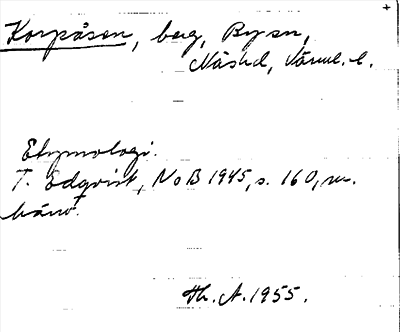 Korpåsen, berg, By sn,
Näshd, Värml. l.
Etymologi.
T. Edqvist, NoB 1945, s. 160, m.
hänv.
Th. A. 1955.